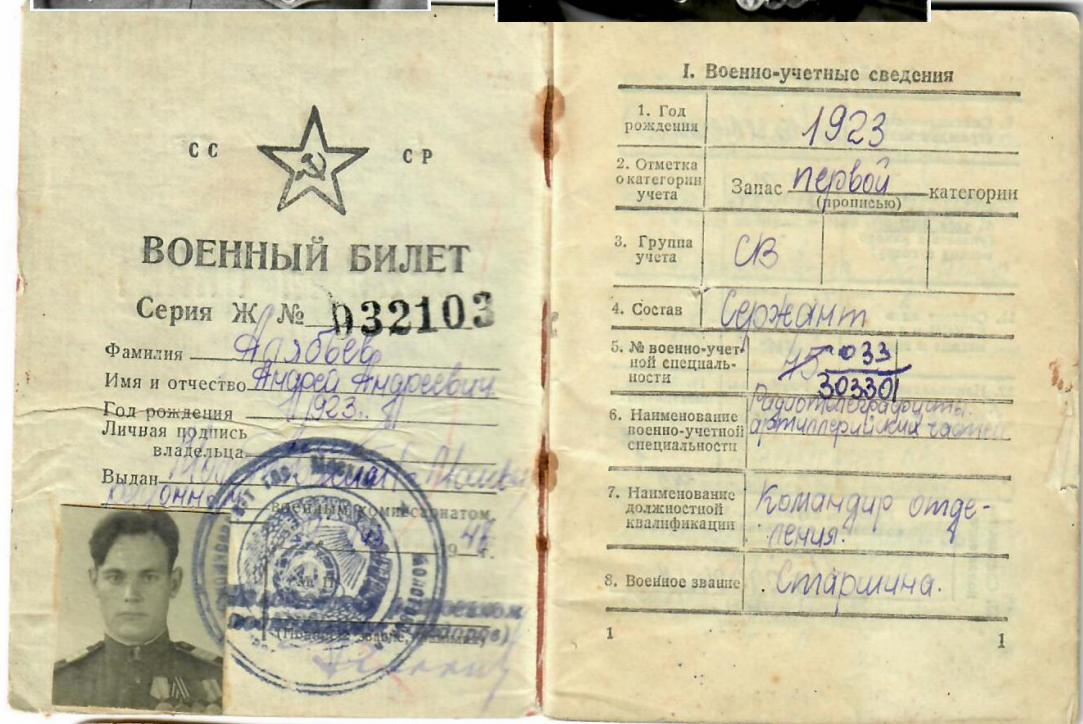 СС СР
ВОЕННЫЙ БИЛЕТ
Серия Ж № 032103
Фамилия Алябьев
Имя и отчество Андрей Андреевич
Год рождения 1923
Личная подпись
владельца
Выдан
районным
военным комиссариатом
19 г.
I. Военно-учетные сведения
1. Год
рождения
1923
2. Отметка
о категории
учета
Запас первой категории
(прописью)
3. Группа
учета
СВ
4. Состав
Сержант
5. № военно-учет-
ной специаль-
ности
45 033
30330
6. Наименование
военно-учетной
специальности
Радиотелеграфисты
артиллерийских частей
7. Наименование
должностной
квалификации
Командир отде-
ления.
8. Военное звание
Старшина.
1
1